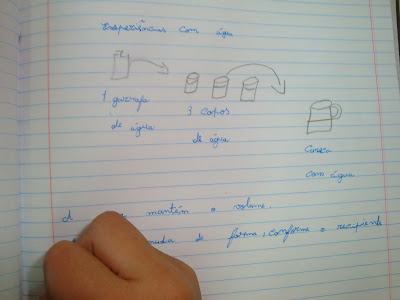 Experiências com água
1 garrafa
de água
3 copos
de água
Caneca
com água
A mantém o volume.
muda de forma, conforme o recipiente